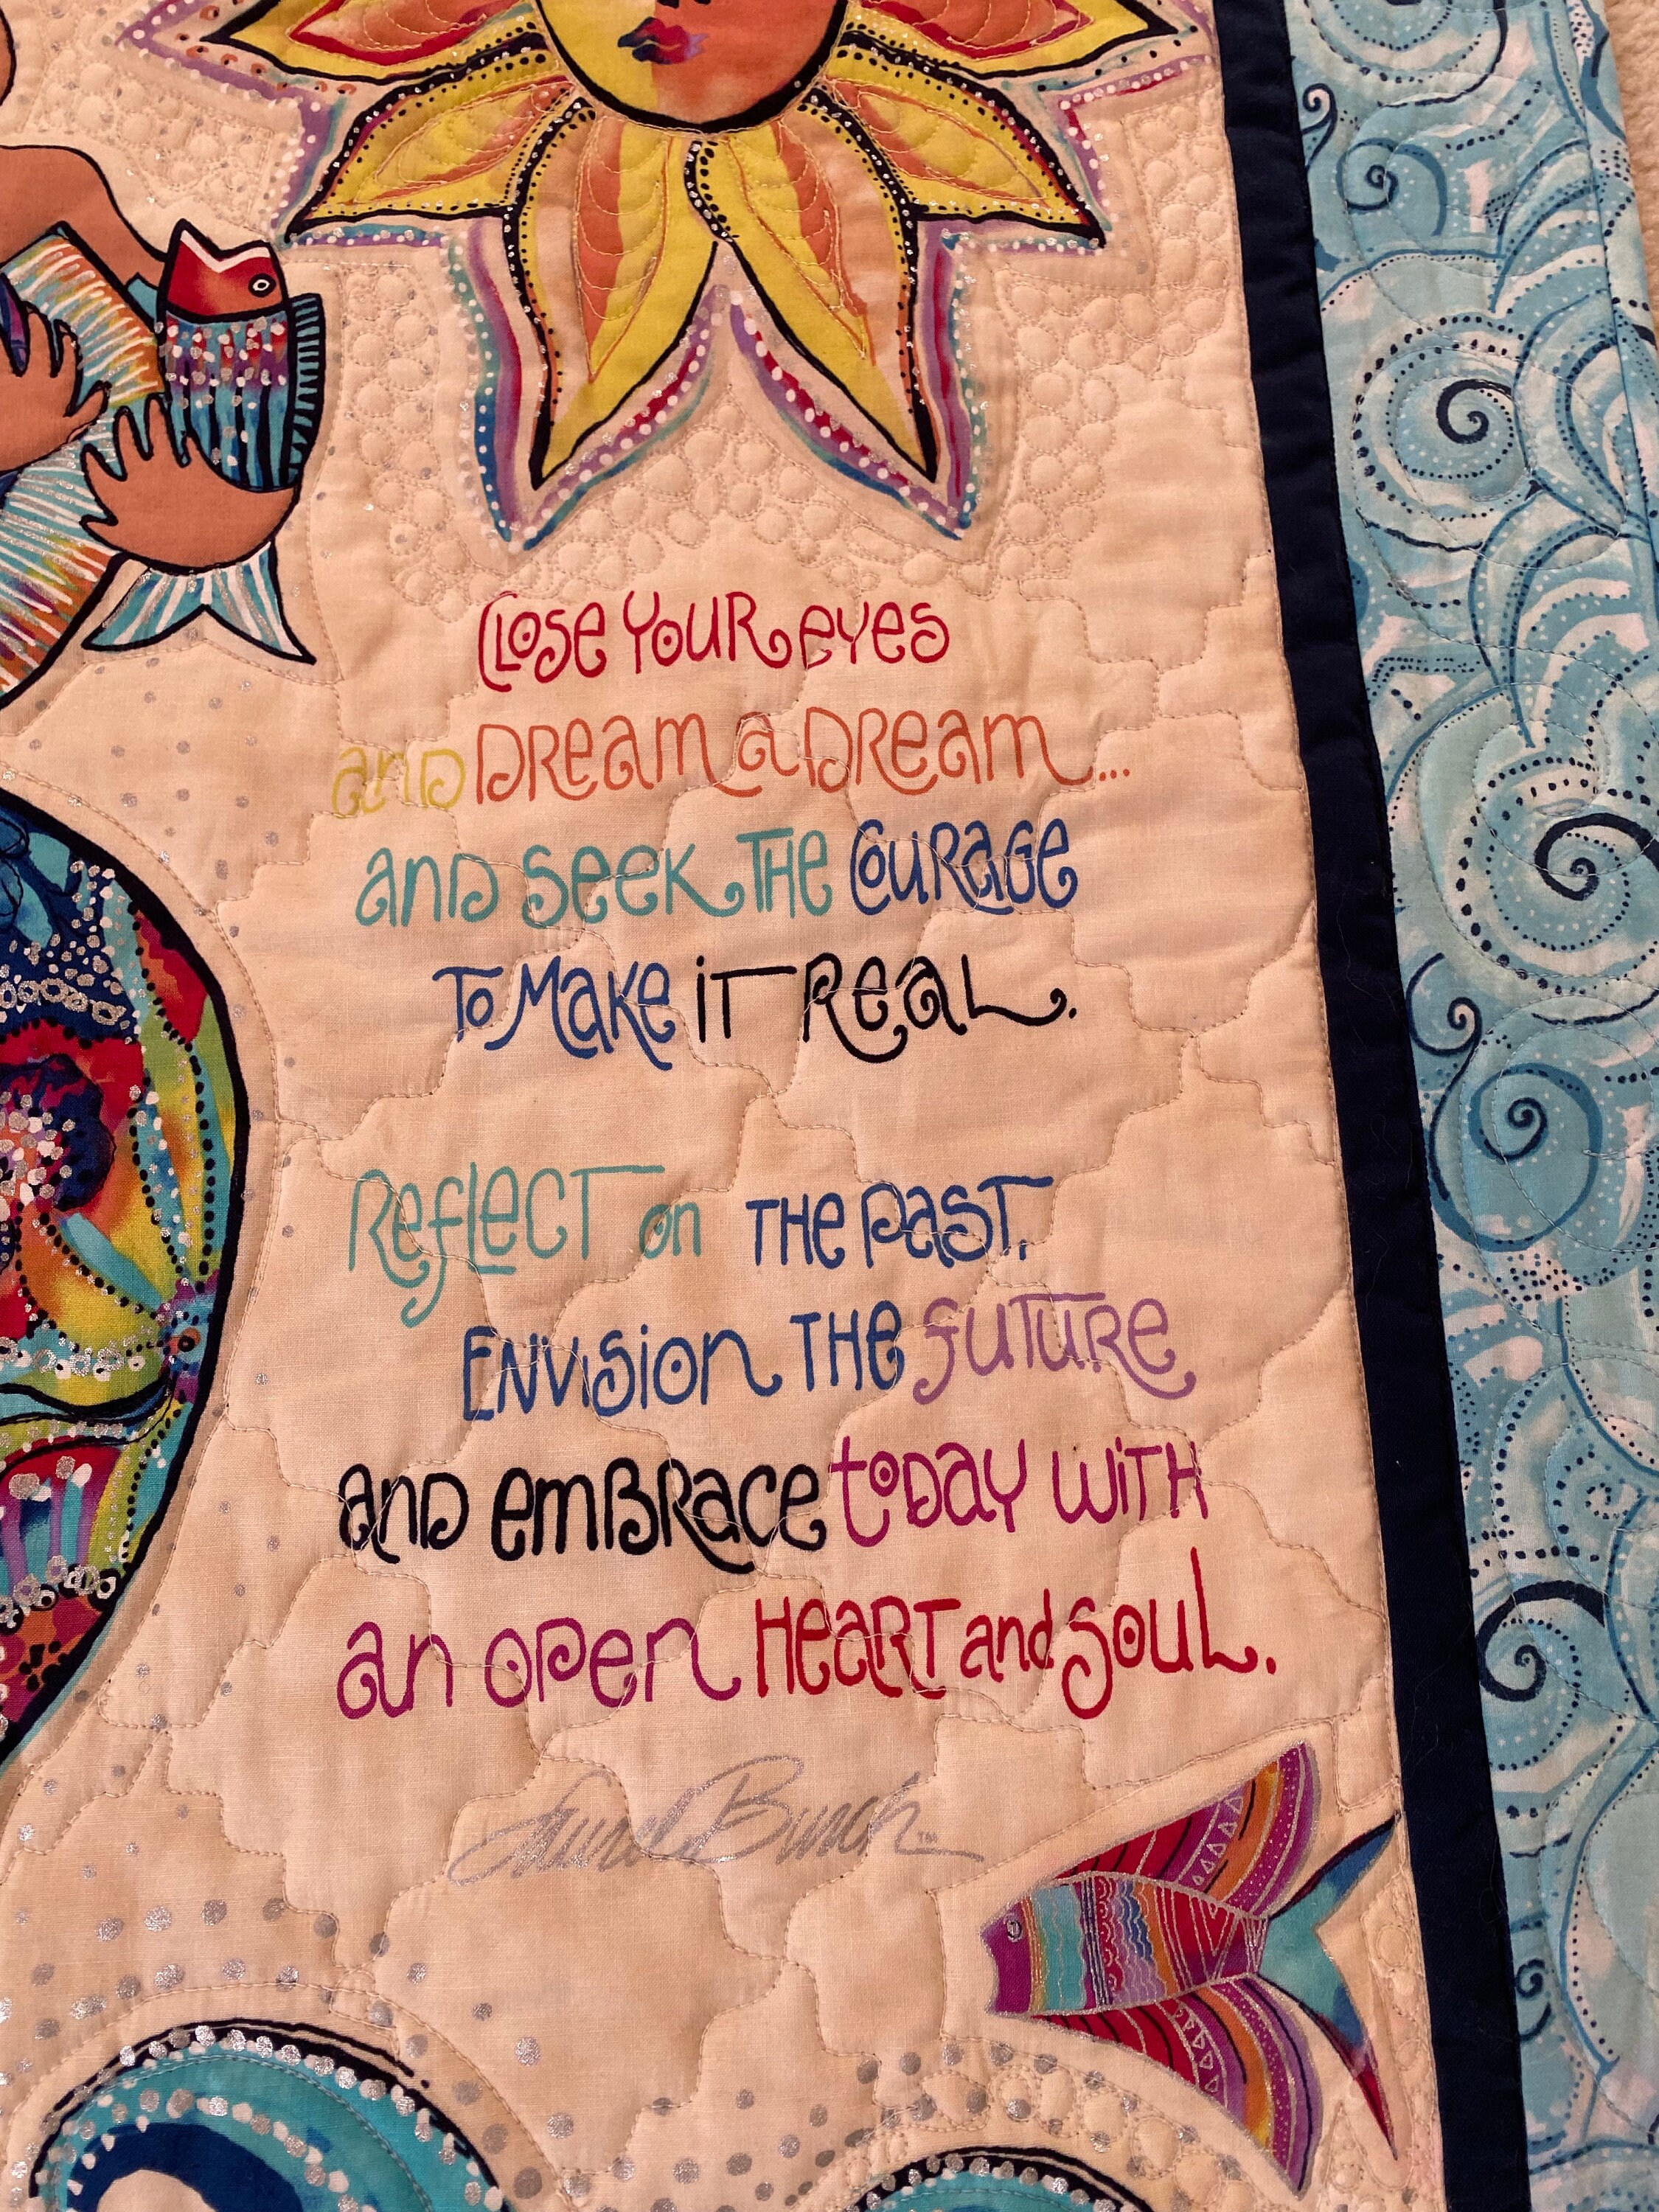 Close your eyes
and dream a dream...
and seek the courage
to make it real.
Reflect on the past,
envision the future
and embrace today with
an open heart and soul.
Laurel Burch™